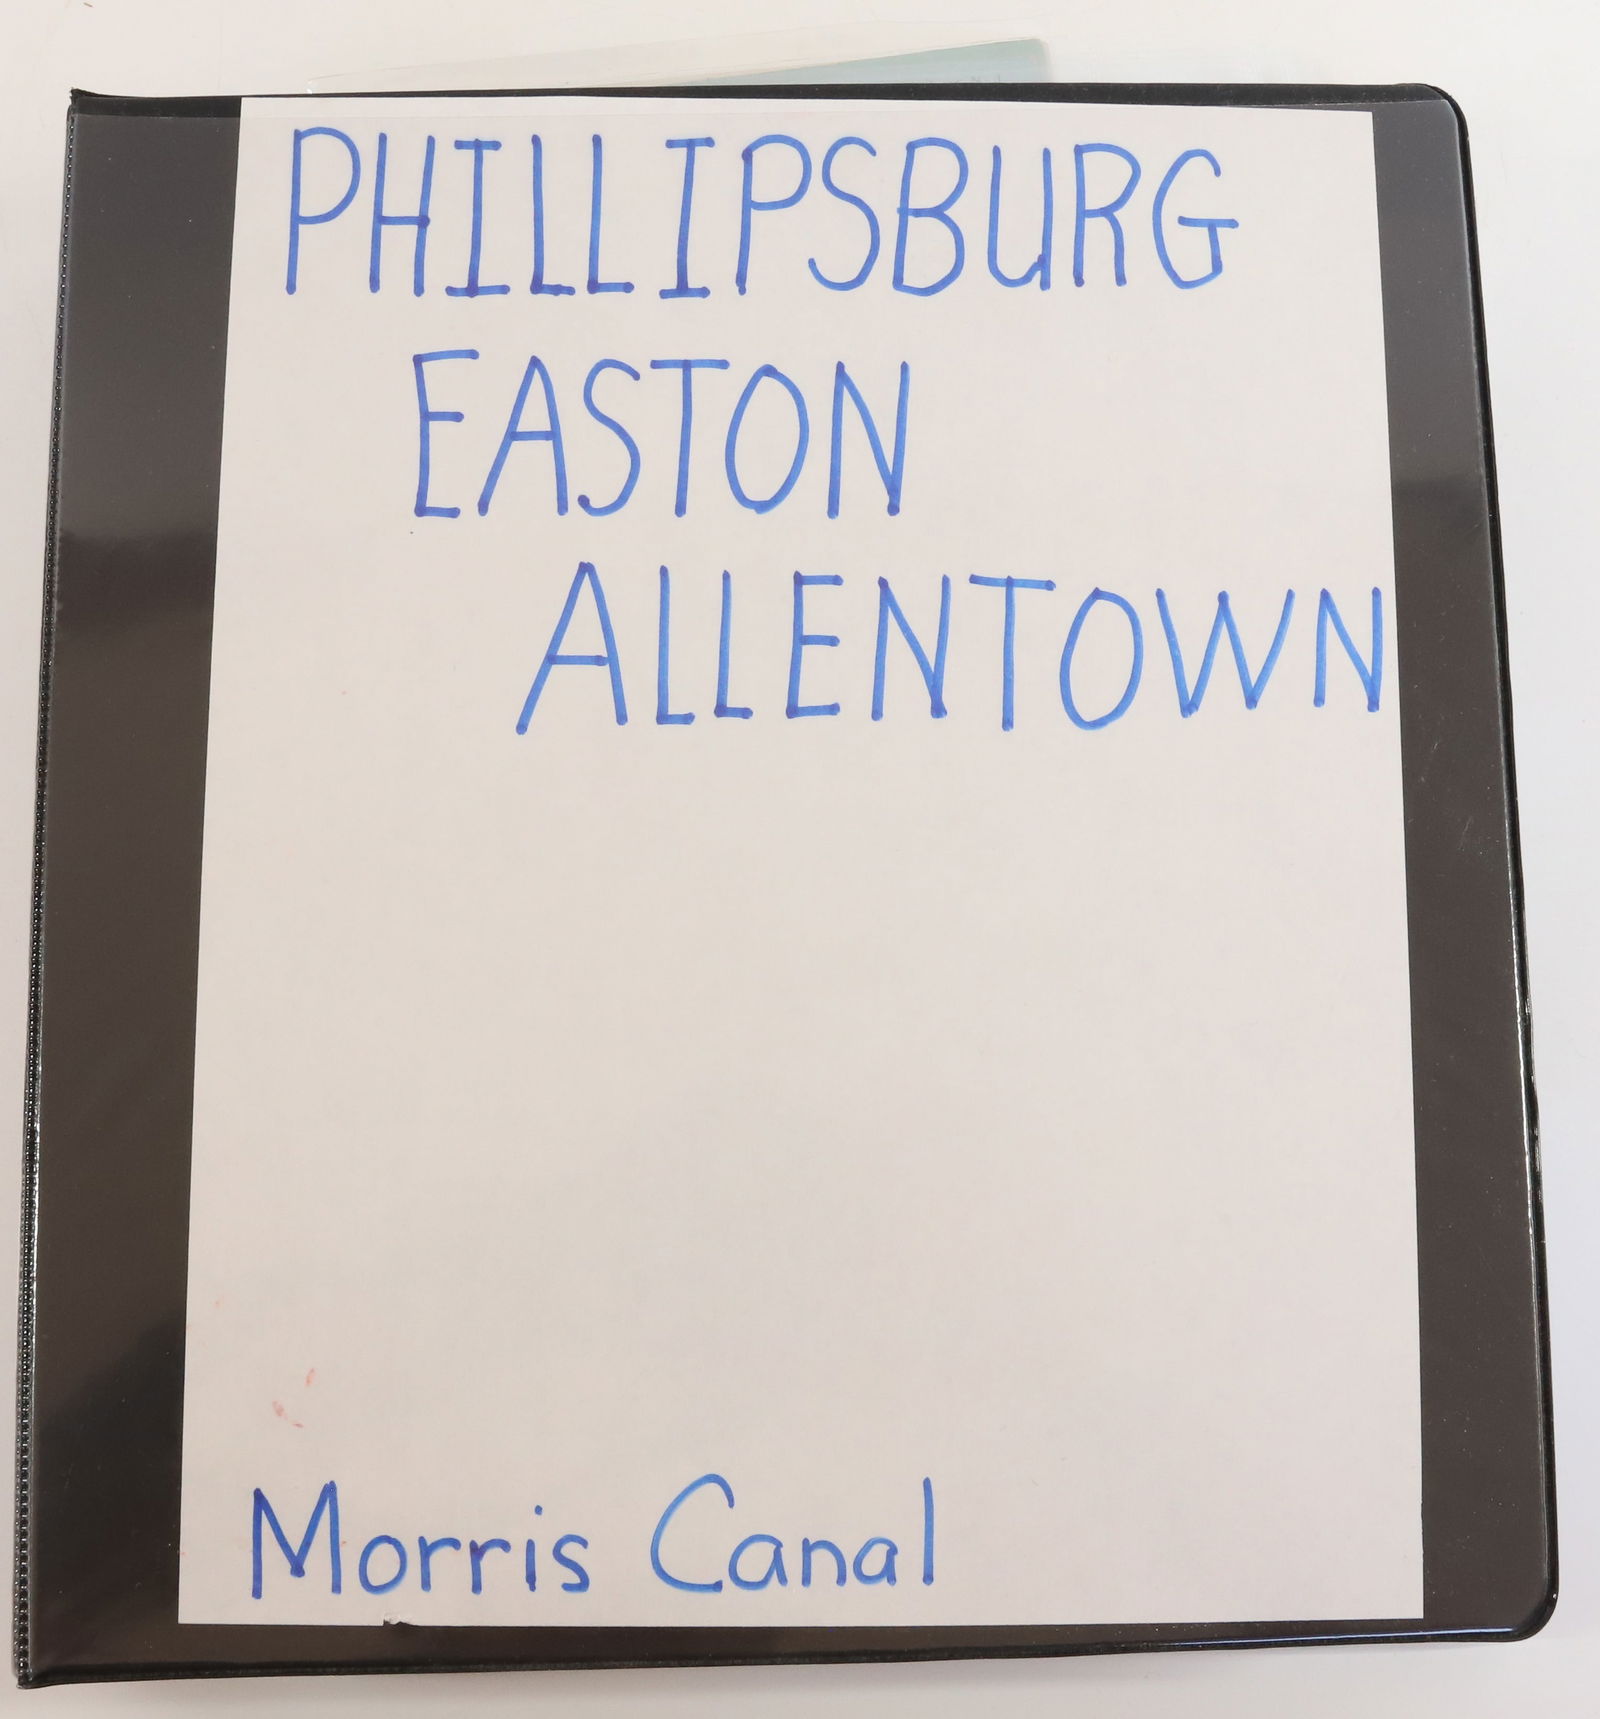 PHILLIPSBURG
EASTON
ALLENTOWN
Morris Canal